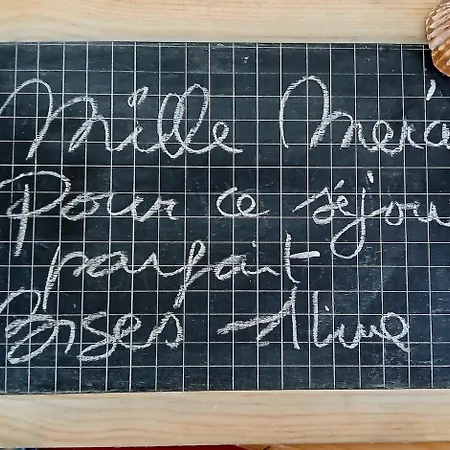 Mille Merci
Pour ce séjour
parfait
Bises - Aline